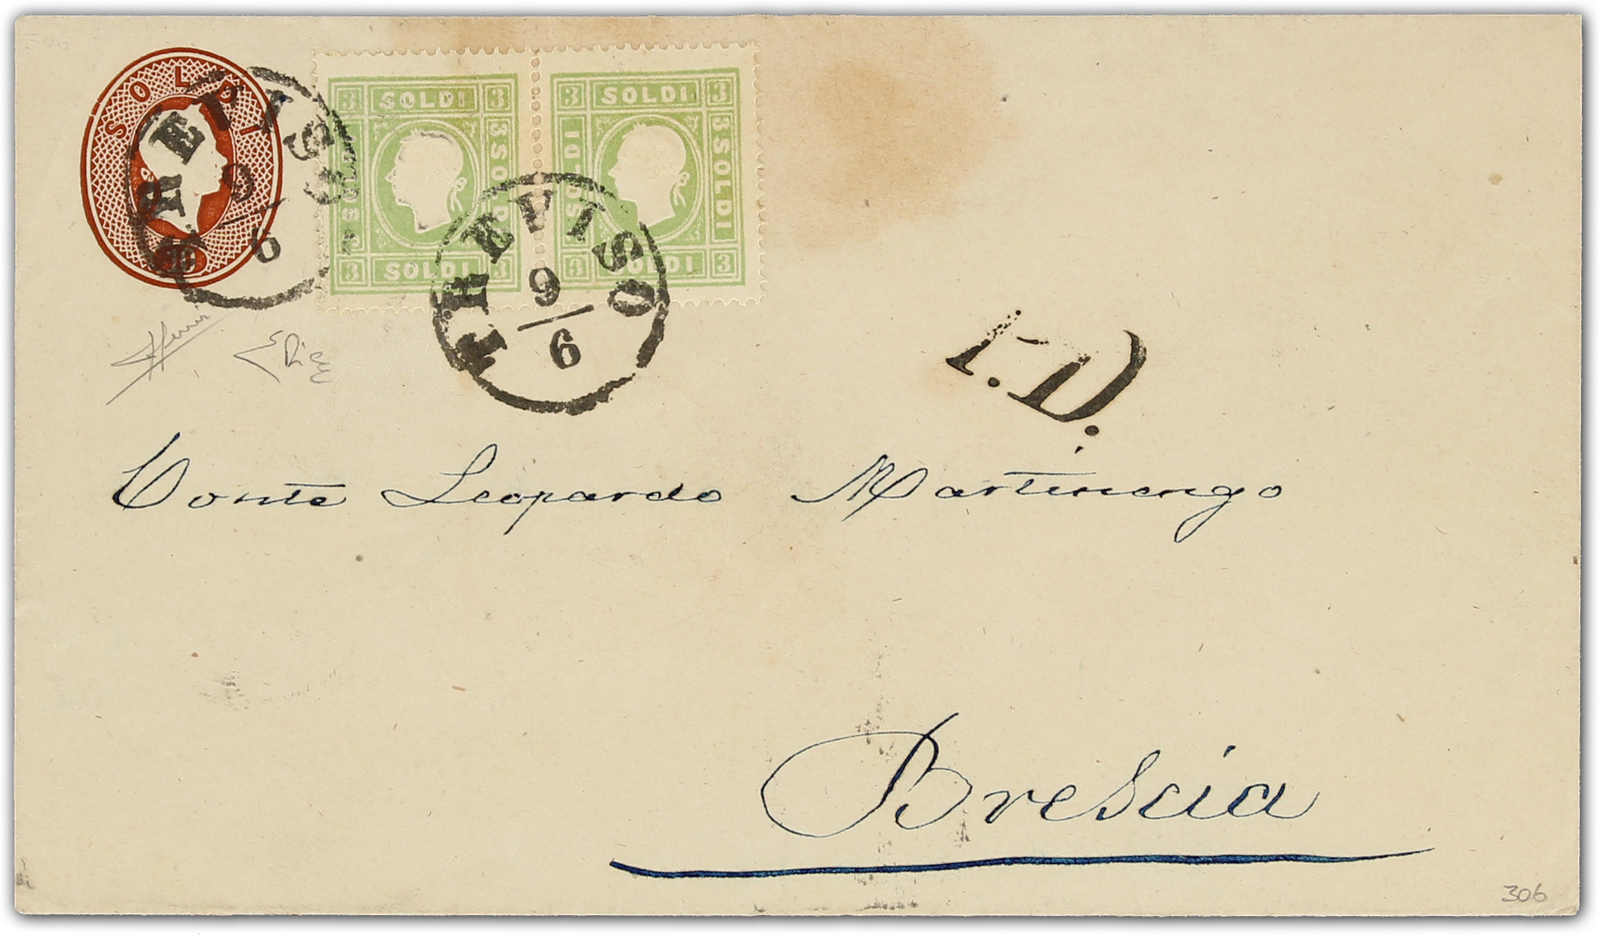 SOLDI
3 SOLDI 3
3 SOLDI
3 SOLDI 3
3 SOLDI 3
3 SOLDI
3 SOLDI 3
TREVISO
9
6
TREVISO
9
6
P.D.
Diena
Conte Leopardo Martinengo
Brescia
306